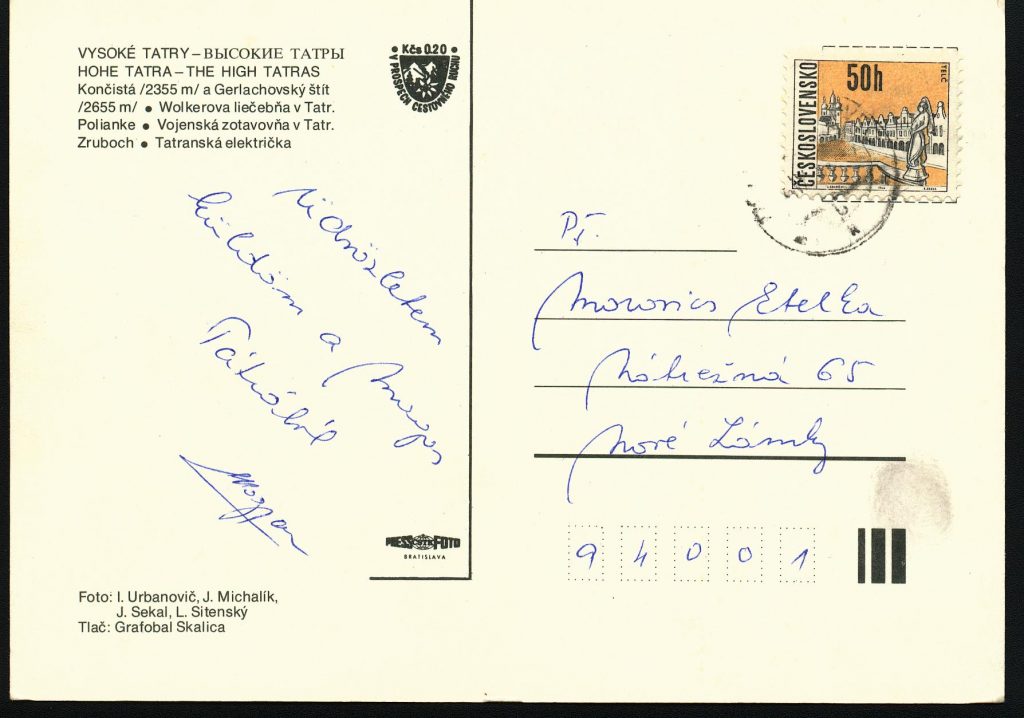 VYSOKÉ TATRY – ВЫСОКИЕ ТАТРЫ
HOHE TATRA – THE HIGH TATRAS
Končistá /2355 m/ a Gerlachovský štít
/2655 m/ ● Wolkerova liečebňa v Tatr.
Polianke ● Vojenská zotavovňa v Tatr.
Zruboch ● Tatranská električka
• Kčs 0.20 •
V PROSPECH CESTOVNÉHO RUCHU
ČESKOSLOVENSKO
50h
TELČ
Üdvözletem
küldöm a magas
Tátrából
Pf.
Morovics Etelka
Nátražná 65
Nové Zámky
94001
PRESSFOTO
BRATISLAVA
Foto: I. Urbanovič, J. Michalík,
J. Sekal, L. Sitenský
Tlač: Grafobal Skalica